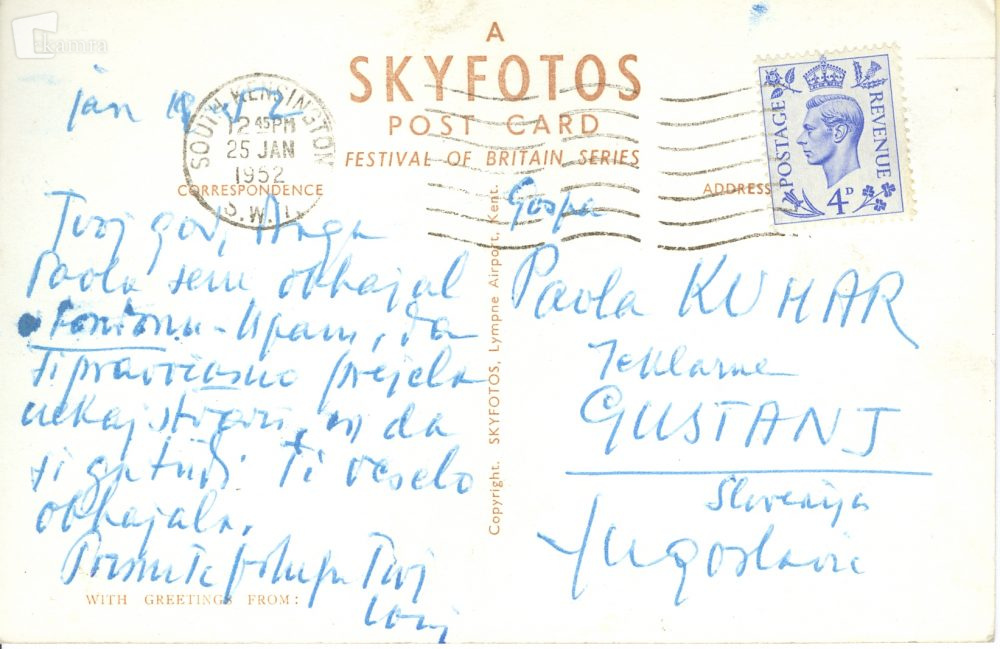 kamra
A
SKYFOTOS
POST CARD
FESTIVAL OF BRITAIN SERIES
jan
SOUTH KENSINGTON
12 45 PM
25 JAN
1952
S.W.7.
CORRESPONDENCE
ADDRESS
POSTAGE
REVENUE
4D
Tvoj god, draga
Paola sem obhajal
Upam, da
ti pravočasno prejela
nekaj stvari, in da
si ga tudi Ti veselo
obhajala.
Tvoj
WITH GREETINGS FROM:
Copyright. SKYFOTOS, Lympne Airport, Kent.
Gospa
Paola KUHAR
Jeklarne
GUŠTANJ
Slovenija
Yugoslavia